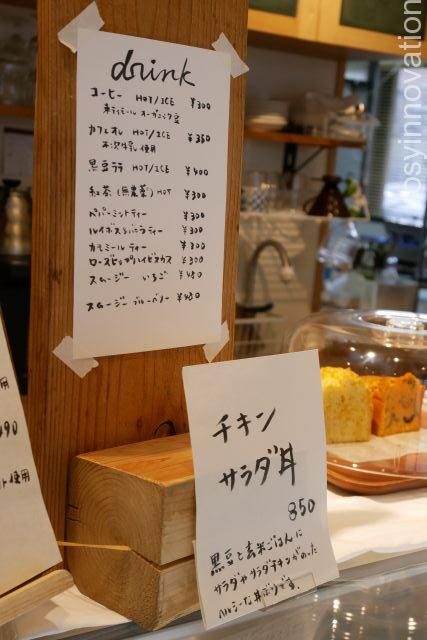 drink
コーヒー HOT/ICE ¥300
東ティモール オーガニック豆
カフェオレ HOT/ICE ¥350
木次牛乳 使用
黒豆ラテ HOT/ICE ¥400
紅茶(無農薬) HOT ¥300
ペパーミントティー ¥300
ルイボスとバニラティー ¥300
カモミールティー ¥300
ローズヒップハイビスカス ¥300
スムージー いちご ¥450
スムージー ブルーベリー ¥450
チキン
サラダ丼
850
黒豆と玄米ごはんに
サラダやサラダチキンがのった
ヘルシーな丼ぶりです。
用
490
ト使用
osyinnovation